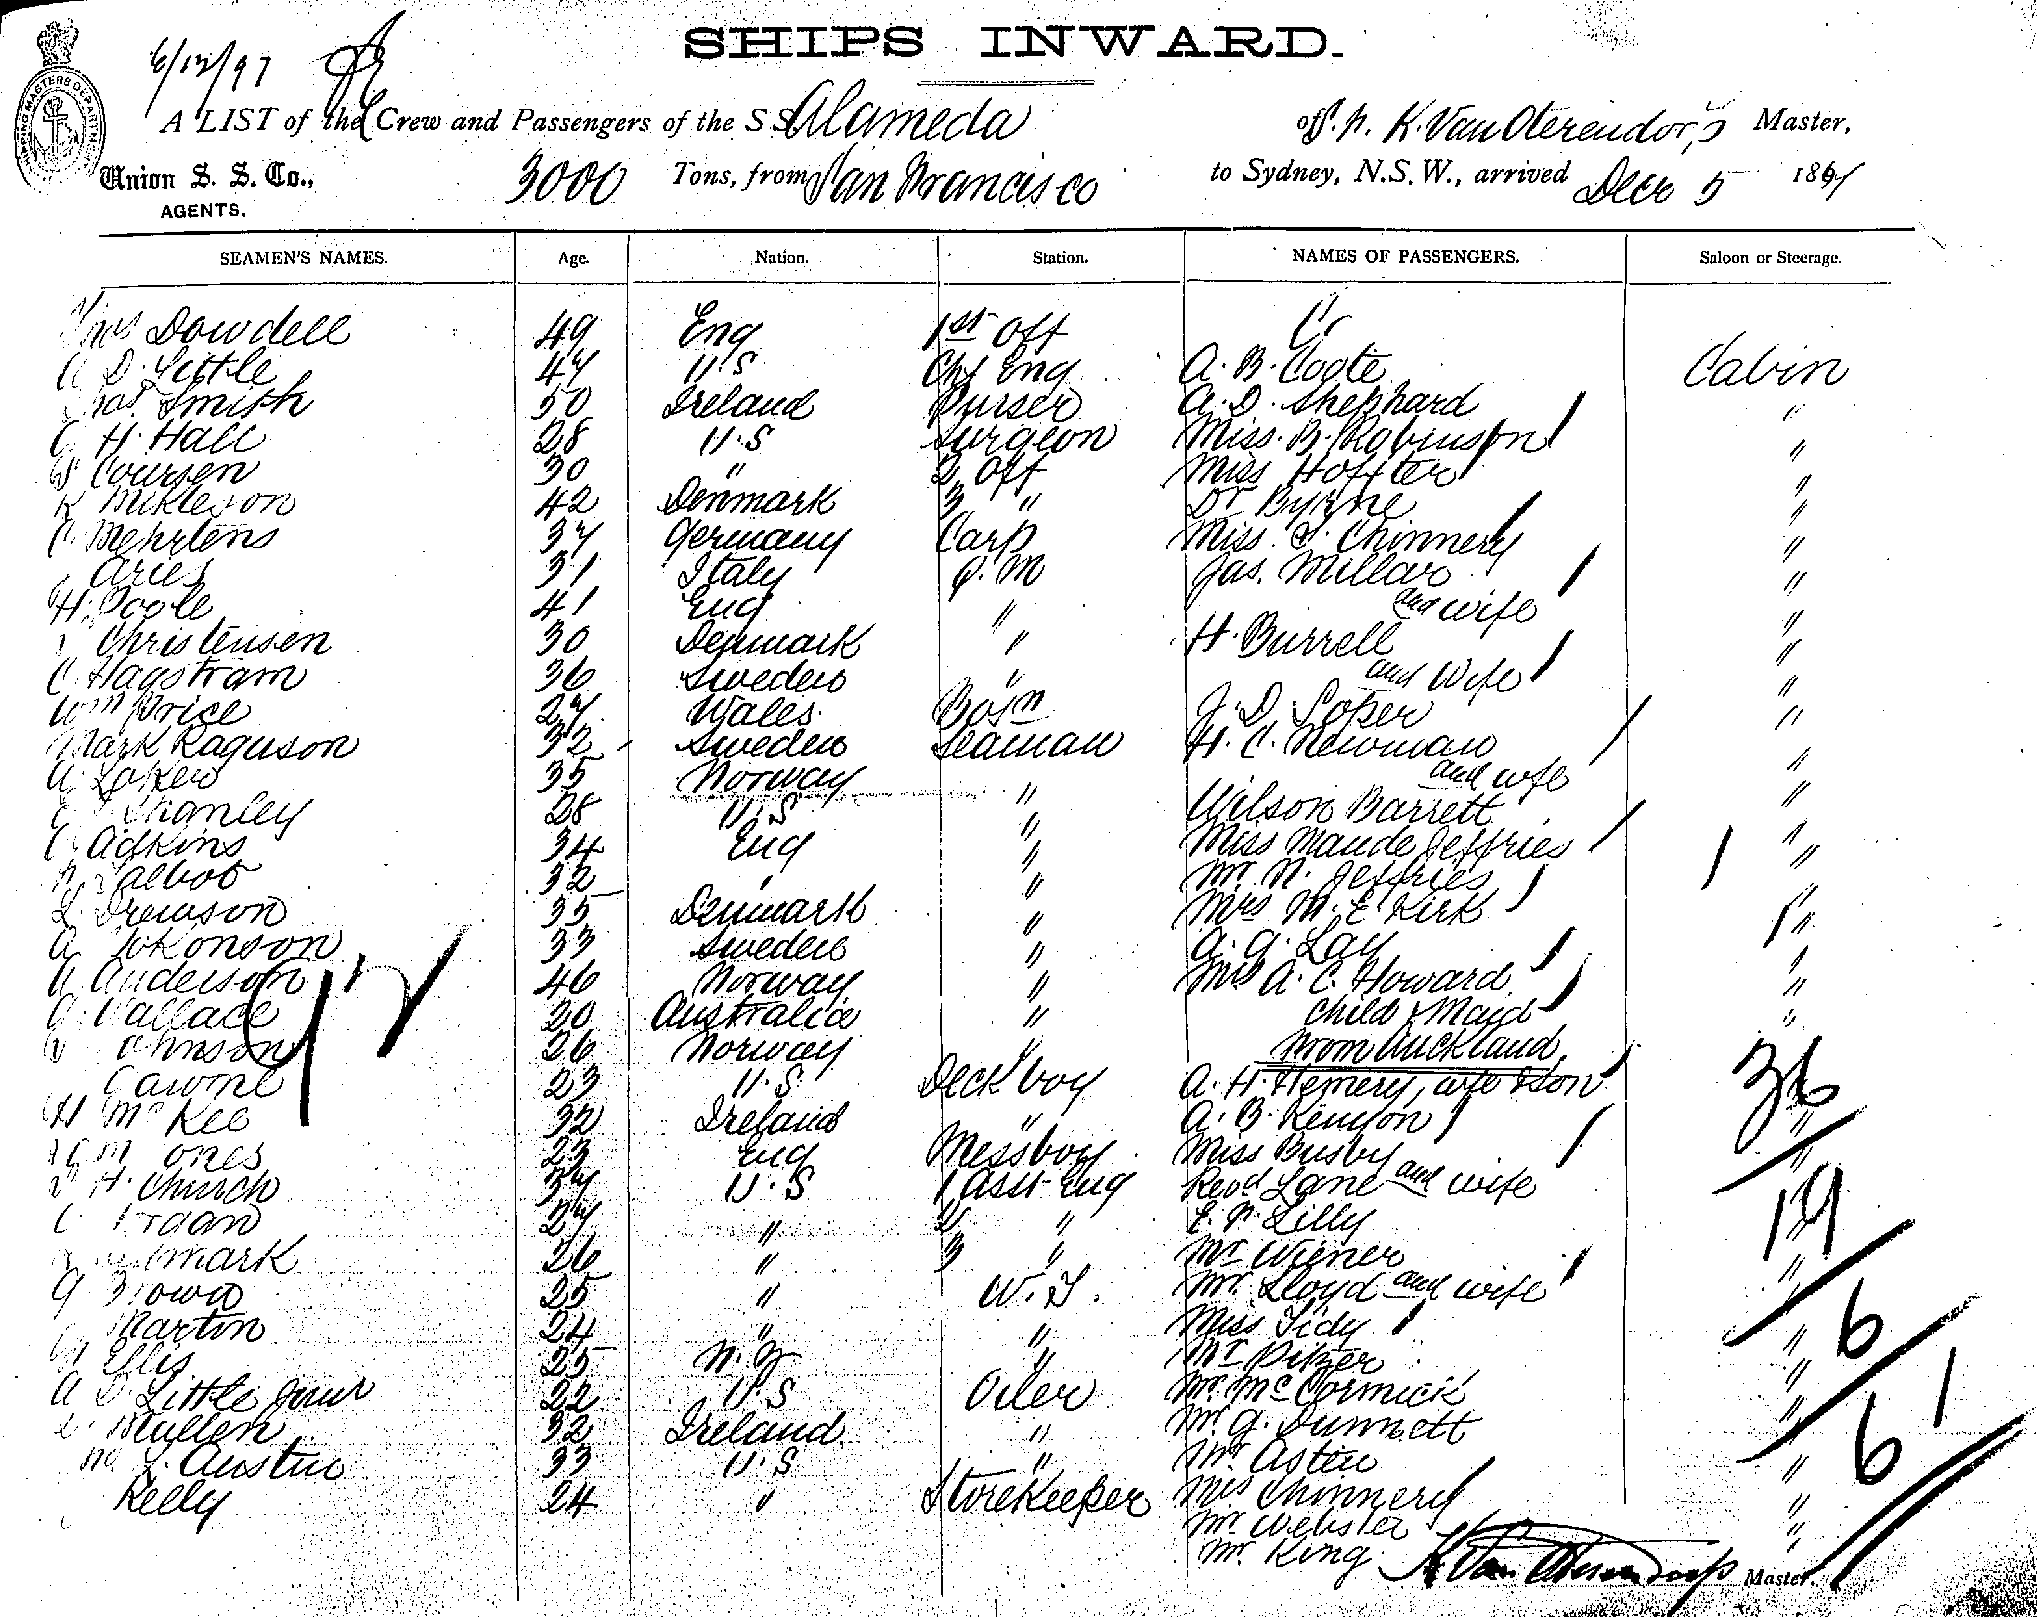 SHIPS INWARD.
6/12/97
A LIST of the Crew and Passengers of the S S Alameda of S. N. K. Van Oterendorp Master,
Union S. S. Co., 3000 Tons, from San Francisco to Sydney, N.S.W., arrived Dec 5 1897
AGENTS.
SEAMEN'S NAMES. Age. Nation. Station. NAMES OF PASSENGERS. Saloon or Steerage.
Dowdell 49 Eng 1st Off
D. Little 47 U.S Chf Eng A. B. Coote Cabin
Smith 50 Ireland Purser A. D. Shephard "
C H. Hall 28 U.S Surgeon Miss. B. Robinson "
Coursen 30 " 2 Off Miss Hoffter "
K Mikleson 42 Denmark 3 " Dr Byrne "
C. Mehrtens 37 Germany Carp Miss Chinnery "
Aries 31 Italy Q. M Jas. Millar "
H. Poole 41 Eng " and wife "
Christensen 30 Denmark " H. Burrell "
C. Hagstram 36 Sweden " and Wife "
Wm Price 27 Wales Bos'n J. D. Soper "
Mark Raguson 32 Sweden Seaman H. C. Newman "
A. Loken 35 Norway " and wife "
Shanley 28 U.S " Wilson Barrett "
C. Adkins 34 Eng " Miss Maude Jeffries "
Talbot 32 " " Mr. N. Jeffries
Drewson 35 Denmark " Mrs M. E. Kirk "
A 33 Sweden " A. G. Lay "
A Anderson 46 Norway " Mrs A. C. Howard "
G. Wallace 20 Australia " Child & Maid "
Johnson 26 Norway " From Auckland
23 U.S Deck boy A. H. Hemery, wife & Son 36
H McKee 32 Ireland " A. B. Kenyon "
Jones 23 Eng Messboy Miss Busby "
H. Church 37 U.S 1 Asst Eng Revd Lane and wife 19
27 " 2 " E. N. Lilly "
26 " 3 " Mr Wiener "
G Brown 25 " W. T. Mr. Lloyd and wife "
Martin 24 " " Miss Tidy " 6
Ellis 25 N. Z " Mr Pitzer "
A D. Little Junr 22 U.S Oiler Mr. McCormick " 61
Mullen 32 Ireland " Mr. G. Dunnett "
L. Austin 33 U.S " Mr Astin "
Kelly 24 " Storekeeper Mrs Chinnery "
Mr Webster "
Mr. King
K Van Oterendorp Master.